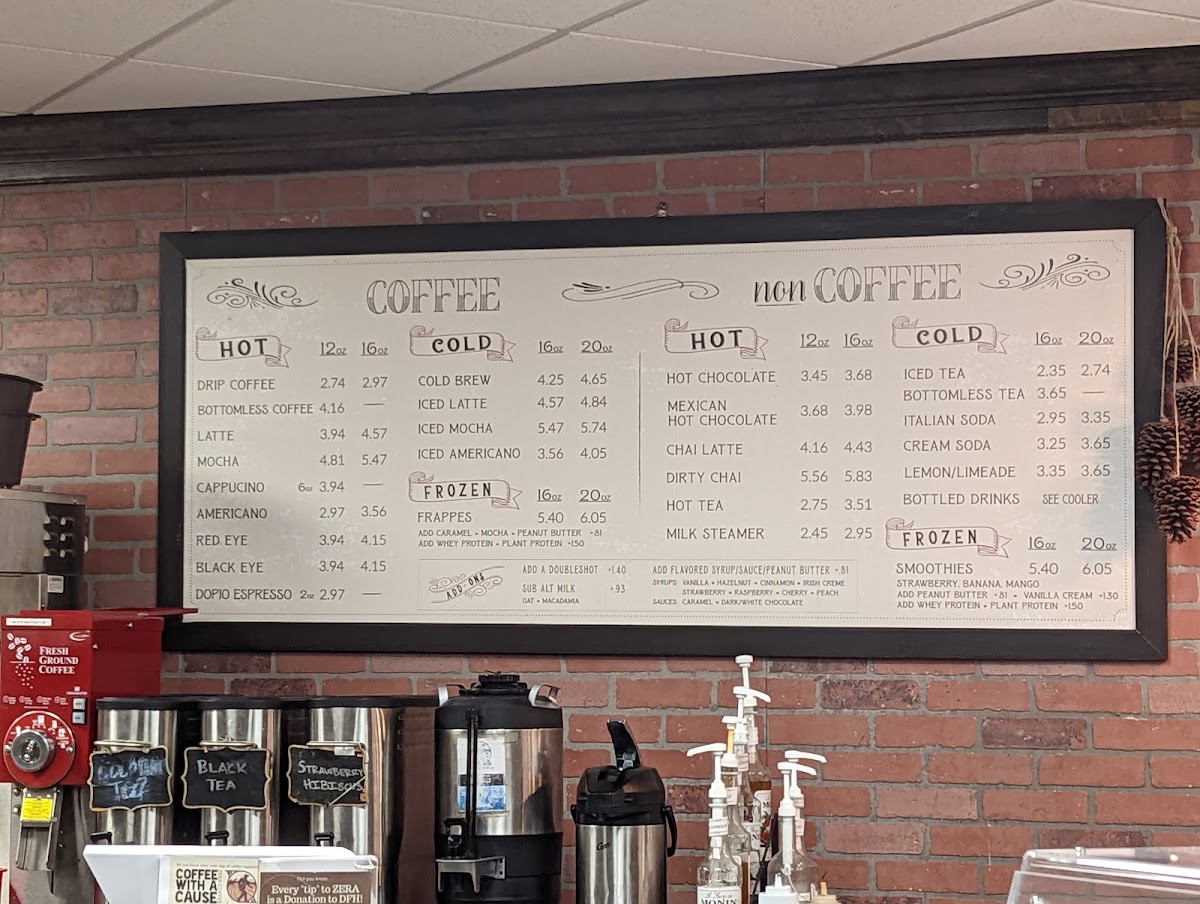 COFFEE
HOT 12oz 16oz
DRIP COFFEE 2.74 2.97
BOTTOMLESS COFFEE 4.16 —
LATTE 3.94 4.57
MOCHA 4.81 5.47
CAPPUCINO 6oz 3.94 —
AMERICANO 2.97 3.56
RED EYE 3.94 4.15
BLACK EYE 3.94 4.15
DOPIO ESPRESSO 2oz 2.97 —
COLD 16oz 20oz
COLD BREW 4.25 4.65
ICED LATTE 4.57 4.84
ICED MOCHA 5.47 5.74
ICED AMERICANO 3.56 4.05
FROZEN 16oz 20oz
FRAPPES 5.40 6.05
ADD CARAMEL • MOCHA • PEANUT BUTTER +.81
ADD WHEY PROTEIN • PLANT PROTEIN +1.50
non COFFEE
HOT 12oz 16oz
HOT CHOCOLATE 3.45 3.68
MEXICAN
HOT CHOCOLATE 3.68 3.98
CHAI LATTE 4.16 4.43
DIRTY CHAI 5.56 5.83
HOT TEA 2.75 3.51
MILK STEAMER 2.45 2.95
COLD 16oz 20oz
ICED TEA 2.35 2.74
BOTTOMLESS TEA 3.65 —
ITALIAN SODA 2.95 3.35
CREAM SODA 3.25 3.65
LEMON/LIMEADE 3.35 3.65
BOTTLED DRINKS SEE COOLER
FROZEN 16oz 20oz
SMOOTHIES 5.40 6.05
STRAWBERRY, BANANA, MANGO
ADD PEANUT BUTTER +.81 • VANILLA CREAM +1.30
ADD WHEY PROTEIN • PLANT PROTEIN +1.50
ADD-ONS
ADD A DOUBLESHOT +1.40
SUB ALT MILK +.93
OAT • MACADAMIA
ADD FLAVORED SYRUP/SAUCE/PEANUT BUTTER +.81
SYRUPS: VANILLA • HAZELNUT • CINNAMON • IRISH CREME
STRAWBERRY • RASPBERRY • CHERRY • PEACH
SAUCES: CARAMEL • DARK/WHITE CHOCOLATE
FRESH
GROUND
COFFEE
BLACK
TEA
STRAWBERRY
HIBISCUS
COFFEE
WITH A
CAUSE
Every "tip" to ZERA
is a Donation to DFH!
MONIN